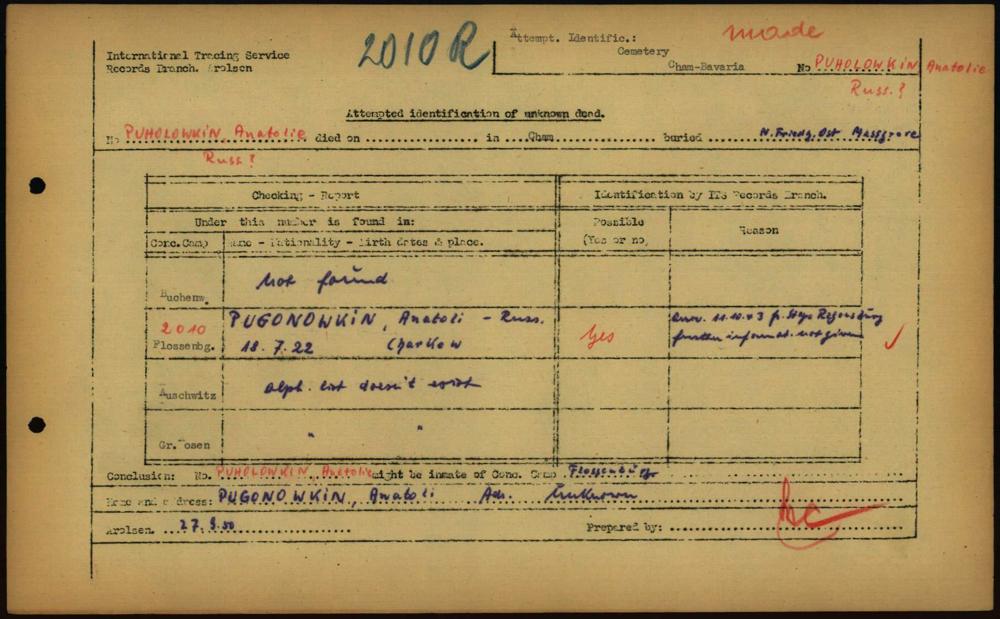 2010 R
Attempt. Identific.:
Cemetery
Cham-Bavaria
made
International Tracing Service
Records Branch. Arolsen
No PUHOLOWKIN Anatolie
Russ.?
Attempted identification of unknown dead.
No PUHOLOWKIN, Anatolie died on ........ in ...Cham........ buried ..... N. Friedh. Ost Massgrave
Russ?
Checking - Report
Identification by ITS Records Branch.
Under this number is found in:
Possible
(Yes or no)
Reason
Conc.Camp
Name - Nationality - Birth dates & place.
Buchenw.
Not found
2010
Flossenbg.
PUGONOWKIN, Anatoli - Russ.
18. 7. 22 Charkow
Yes
11.10.43 fr. Stapo Regensburg
further informat. not given ✓
Auschwitz
alph. list doesn't exist
Gr. Rosen
" "
Conclusion: No. PUHOLOWKIN, Anatolie might be inmate of Conc. Camp Flossenbürg
Name and address: PUGONOWKIN, Anatoli Adr. Unknown
Arolsen. 27. 9. 50
Prepared by: ........